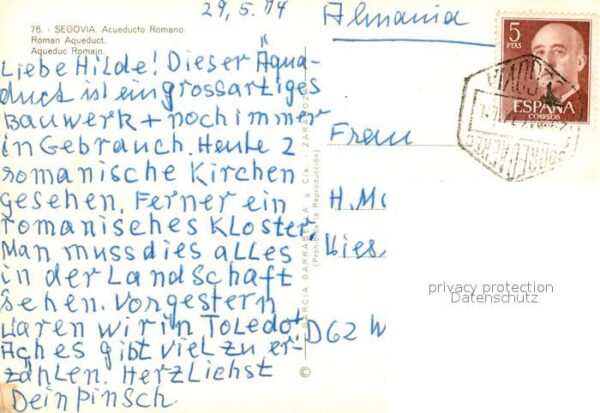 29.5.74
Almania
76. - SEGOVIA. Acueducto Romano.
Roman Aqueduct.
Aqueduc Romain.
Liebe Hilde! Dieser Äqua-
duct ist ein grossartiges
Bauwerk + noch immer
in Gebrauch. Heute 2
romanische Kirchen
gesehen. Ferner ein
romanisches Kloster.
Man muss dies alles
in der Landschaft
sehen. Vorgestern
waren wir in Toledo+
Aches gibt viel zu er-
zählen. Herzlichst
Dein Pinsch.
© GARCIA GARRABELLA y Cía. - ZARAGOZA
(Prohibida la Reproducción)
Frau
H. Mo
Wies
D62 W
5
PTAS
ESPAÑA
CORREOS
privacy protection
Datenschutz